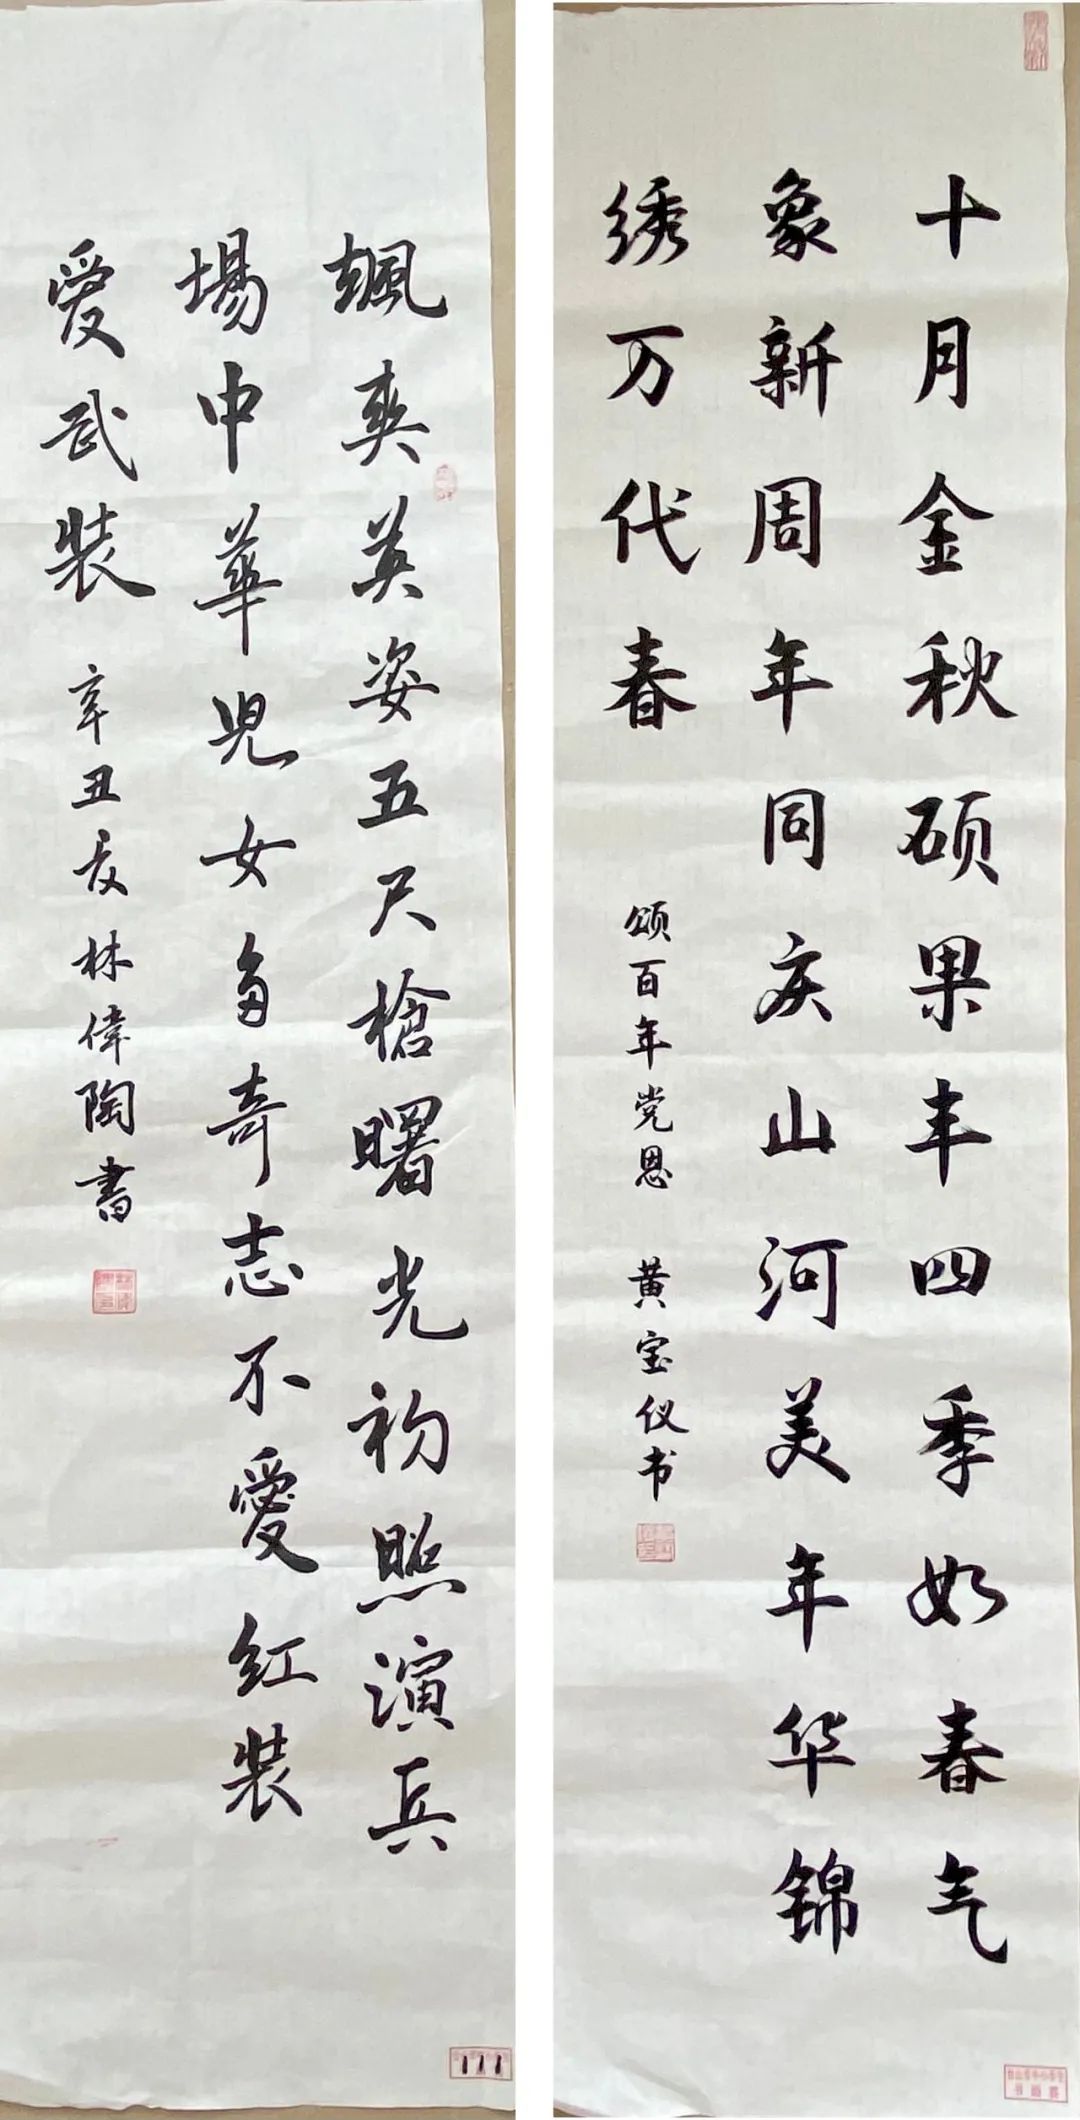 十月金秋硕果丰四季如春气
象新周年同庆山河美年华锦
绣万代春
颂百年党恩 黄宝仪书
颯爽英姿五尺槍曙光初照演兵
場中華兒女多奇志不愛红裝
愛武裝
辛丑夏林偉陶書
111